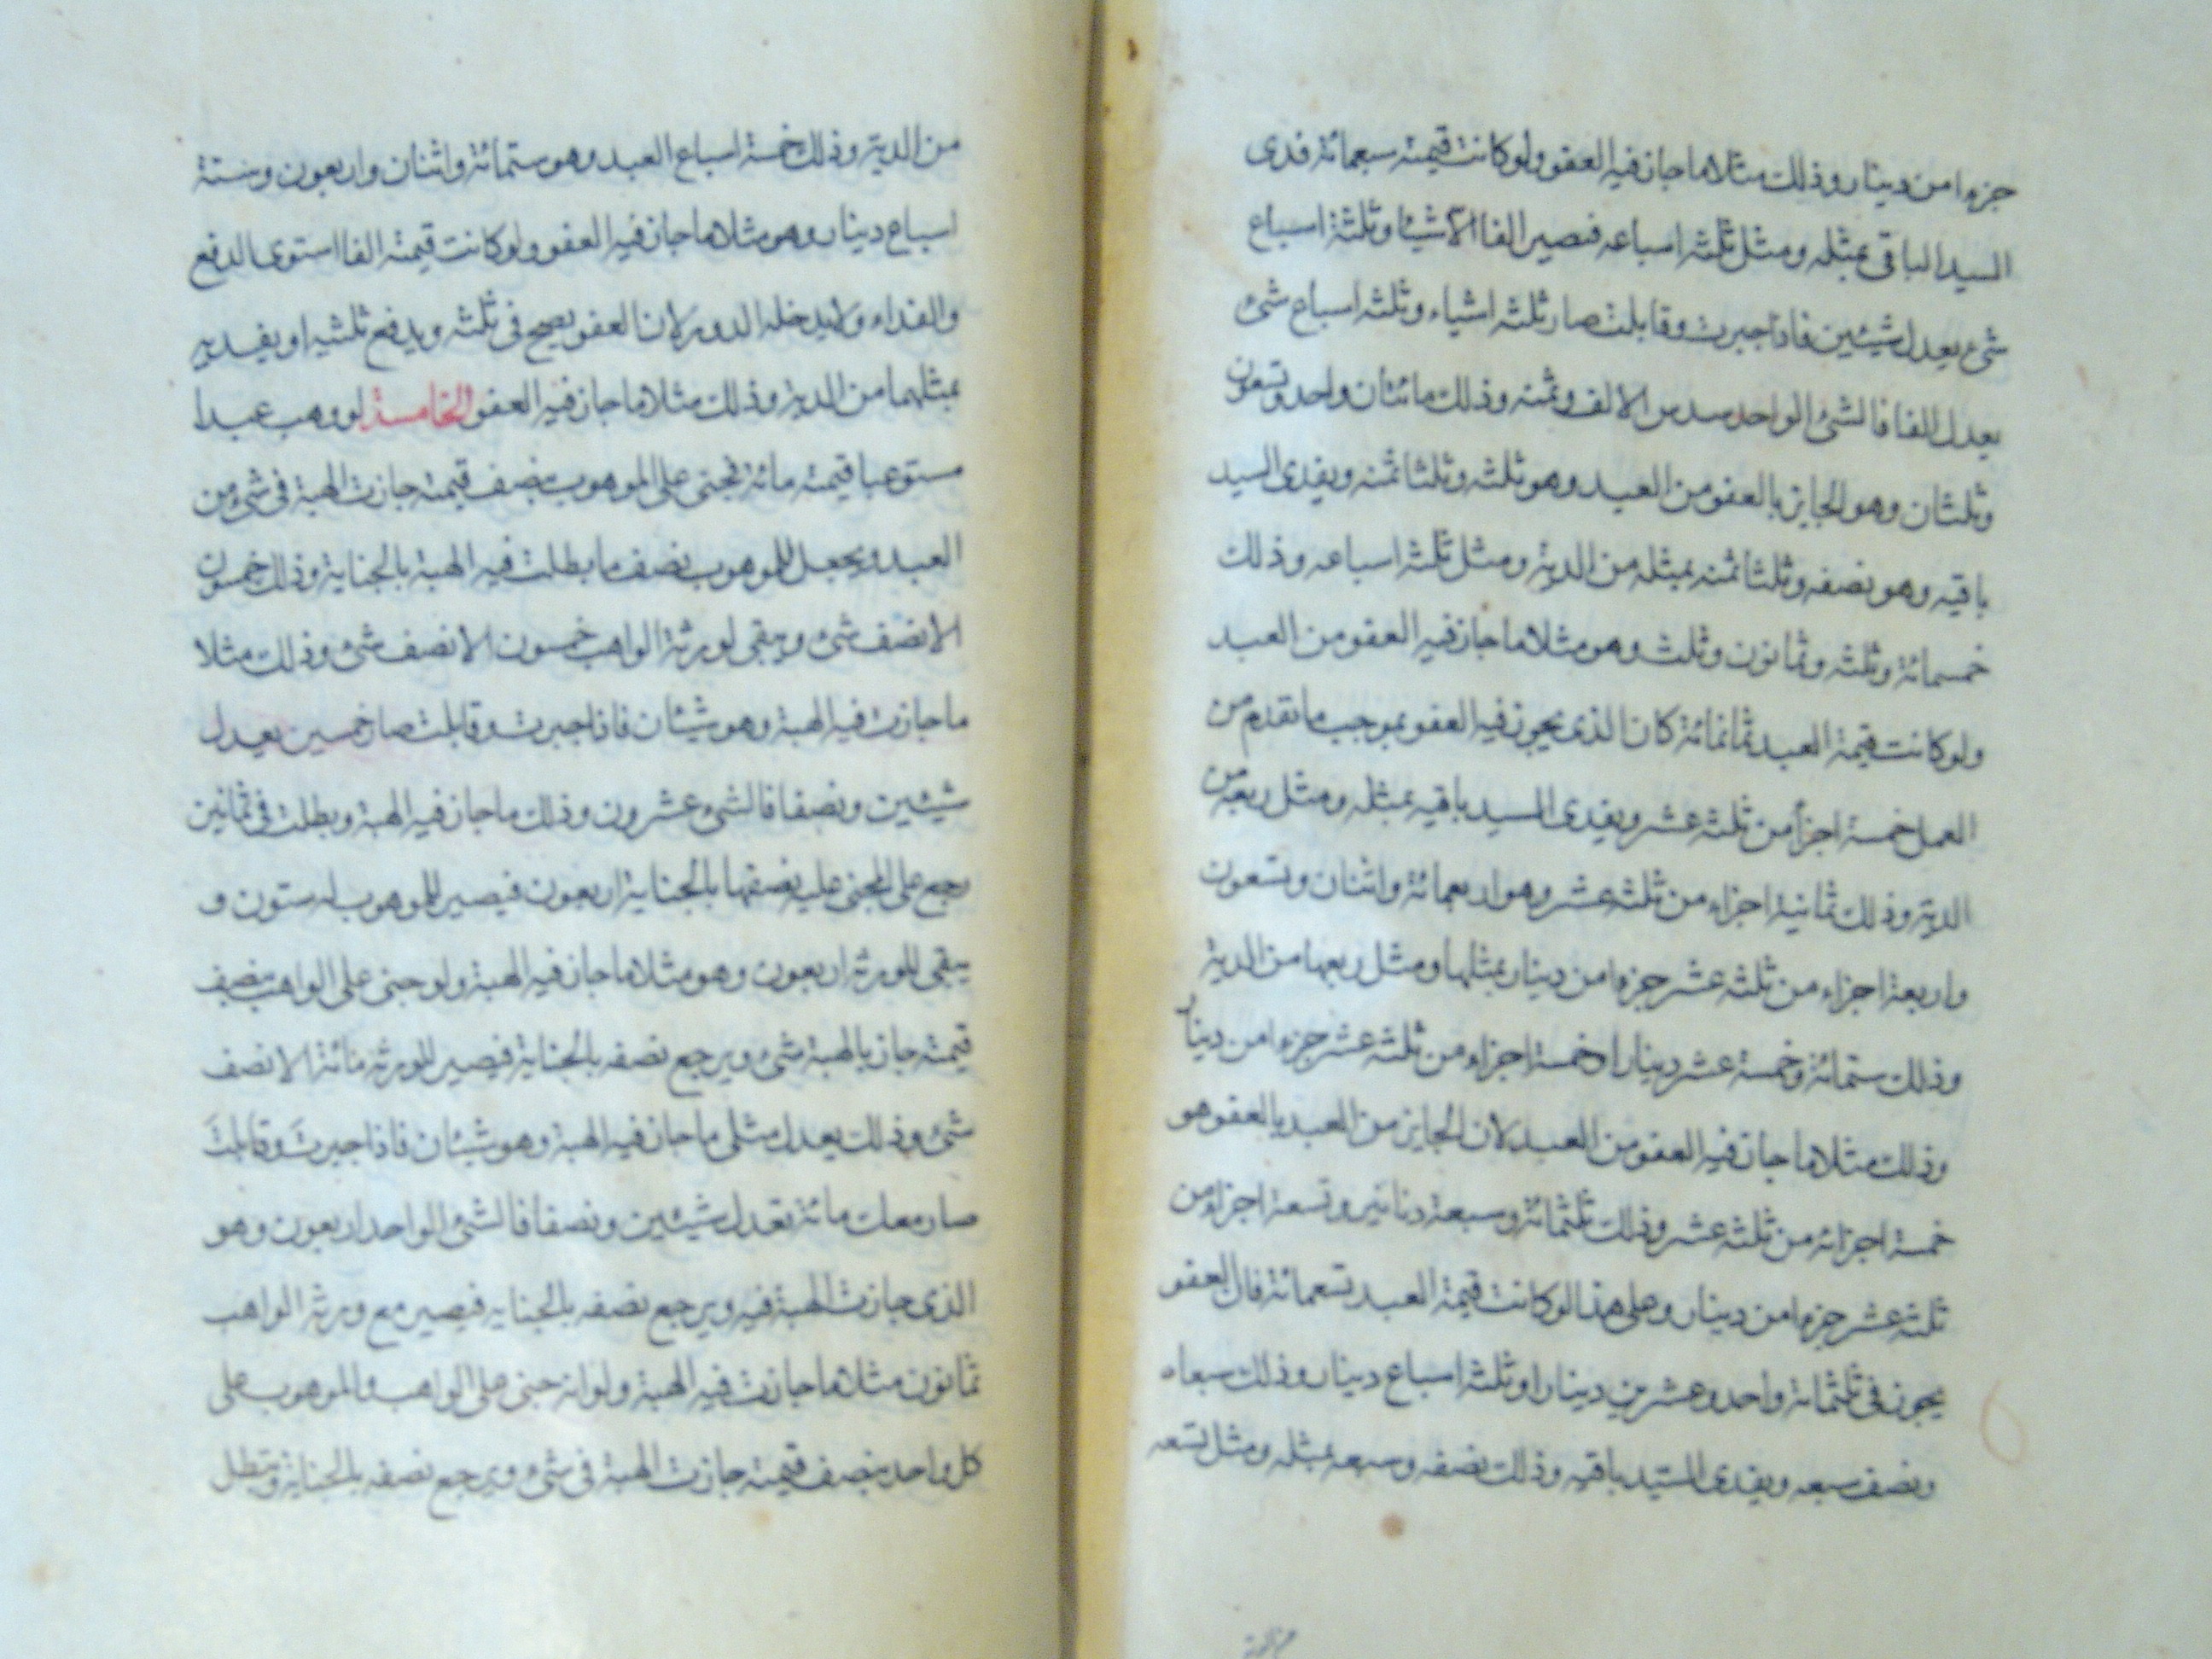 جزءا من دينار وذلك مثلا ما جاز فيه العفو ولو كانت قيمته سبعمائة فدى
السيد الباقى بمثله ومثل ثلثة اسباعه فتصير الفا الا شيئا وثلثة اسباع
شىء يعدل شيئين فاذا جبرت وقابلت صار ثلثة اشياء وثلثة اسباع شئ
يعدل الفا فالشئ الواحد سدس الالف وثمنه وذلك مائتان واحد وتسعون
وثلثان وهو الجايز بالعفو من العبد وهو ثلثه وثلثا ثمنه ويفدى السيد
باقيه وهو نصفه وثلثا ثمنه بمثله من الدية ومثل ثلثة اسباعه وذلك
خمسمائة وثلثه وثمانون وثلث وهو مثلا ما جاز فيه العفو من العبد
ولو كانت قيمة العبد ثمانمائة كان الذى يجوز فيه العفو بموجب ما تقدم من
العمل خمسة اجزأ من ثلثة عشر ويفدى السيد باقيه بمثله ومثل ربعه من
الدية وذلك ثمانية اجزاء من ثلثة عشر وهو اربعمائة واثنان وتسعون
واربعة اجزاء من ثلثة عشر جزءا من دينار بمثلها ومثل ربعها من الدية
وذلك ستمائة وخمسة عشر دينارا وخمسة اجزاء من ثلثة عشر جزءا من دينار
وذلك مثلا ما جاز فيه العفو من العبد لان الجايز من العبد بالعفو هو
خمسة اجزائه من ثلثة عشر وذلك ثلثمائة وسبعة دنانير وتسعة اجزاء من
ثلثة عشر جزءا من دينار وعلى هذا لو كانت قيمة العبد تسعمائة فان العفو
يجوز فى ثلثمائة واحد وعشرين دينارا وثلثة اسباع دينار وذلك سبعاه
ونصف سبعه ويفدى السيد باقيه وذلك نصفه وسبعه بمثله ومثل تسعه
من الدية
من الدية وذلك خمسة اسباع العبد وهو ستمائة واثنان واربعون وستة
اسباع دينار وهو مثلا ما جاز فيه العفو ولو كانت قيمة الفا استوى الدفع
والفداء ولا يدخله الدور لان العفو يصح فى ثلثه ويدفع ثلثيه او يفديه
بمثلهما من الدية وذلك مثلا ما جاز فيه العفو الخامسة لو وهب عبدا
مستوعبا قيمته مائة فجنى على الموهوب بنصف قيمته جازت الهبة فى شىء من
العبد ويحعل للموهوب نصف ما بطلت فيه الهبة بالجناية وذلك خمسون
الا نصف شئ ويبقى لورثة الواهب خمسون الا نصف شئ وذلك مثلا
ما جازت فيه الهبة وهو شيئان فاذا جبرت وقابلت صار خمسين يعدل
شيئين ونصفا فالشئ عشرون وذلك ما جاز فيه الهبة وبطلت فى ثمانين
رجع على المجنى عليه نصفها بالجناية اربعون فيصير للموهوب له ستون و
يبقى للورثة اربعون وهو مثلا ما جاز فيه الهبة ولو جنى على الواهب بنصف
قيمته جاز بالهبة شئ ويرجع نصفه بالجناية فيصير للورثة مائة الا نصف
شئ وذلك يعدل مثلى ما جاز فيه الهبة وهو شيئان فاذا جبرت وقابلت
صار معك مائة تعدل شيئين ونصفا فالشئ الواحد اربعون وهو
الذى جازت الهبة فيه ويرجع نصفه بالجنايه فيصير مع ورثة الواهب
ثمانون مثلا ما جازت فيه الهبة ولو انه جنى على الواهب والموهوب على
كل واحد بنصف قيمته جازت الهبة فى شئ ويرجع نصفه بالجناية وتبطل